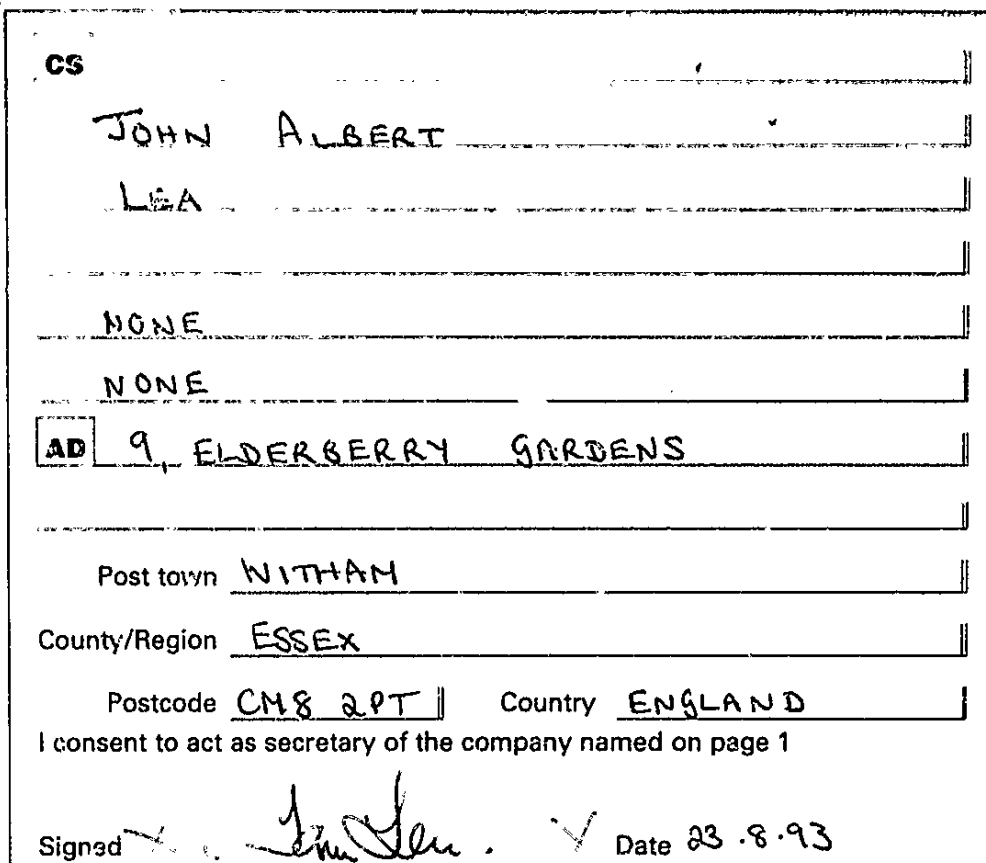 CS
JOHN ALBERT
LEA
NONE
NONE
AD 9, ELDERBERRY GARDENS
Post town WITHAM
County/Region ESSEX
Postcode CM8 2PT Country ENGLAND
I consent to act as secretary of the company named on page 1
Signed Date 23.8.93